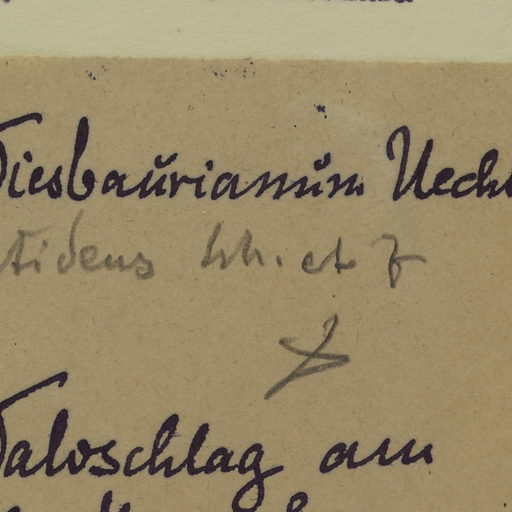 Wiesbaurianum Uecht
tidens Sch. et F
Waldschlag am